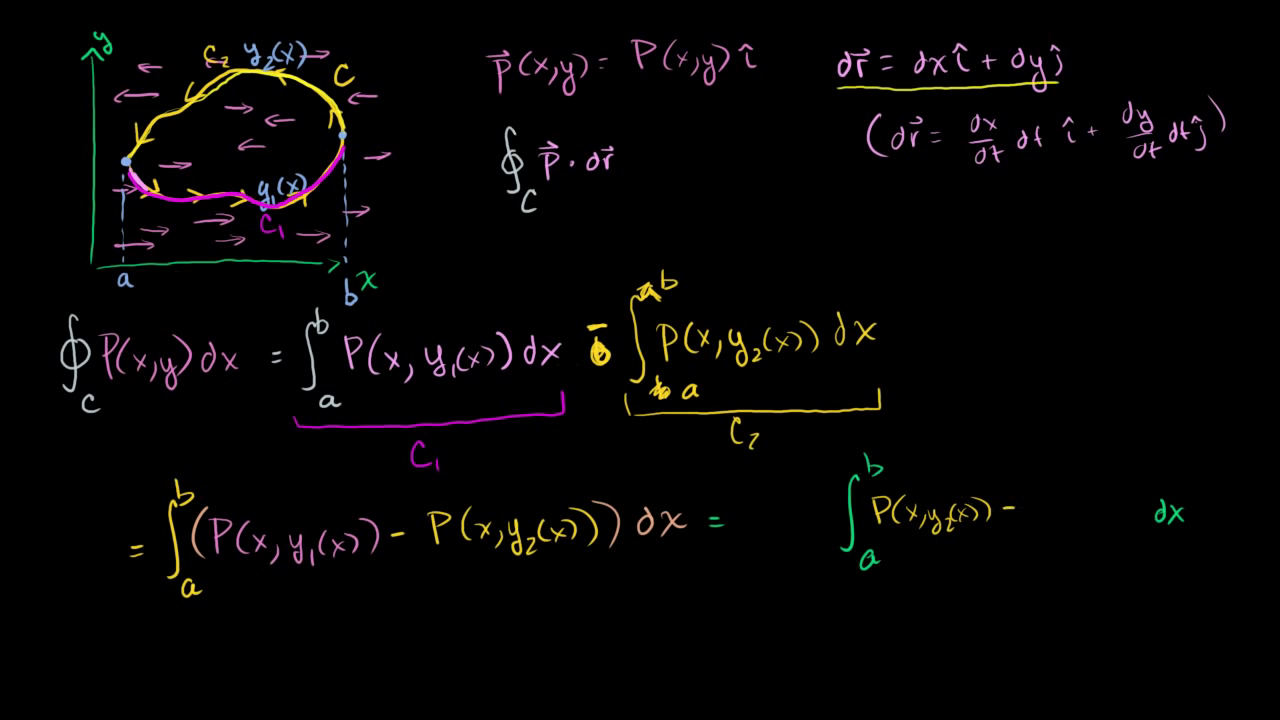 y
C₂ y₂(x) C
y₁(x)
C₁
a b x
p⃗(x,y) = P(x,y) î
dr⃗ = dx î + dy ĵ
(dr⃗ = dx/dt dt î + dy/dt dt ĵ)
∮_C p⃗ · dr⃗
∮_C P(x,y) dx = ∫_a^b P(x, y₁(x)) dx - ∫_a^b P(x, y₂(x)) dx
C₁ C₂
= ∫_a^b (P(x, y₁(x)) - P(x, y₂(x))) dx = ∫_a^b P(x, y₂(x)) - dx